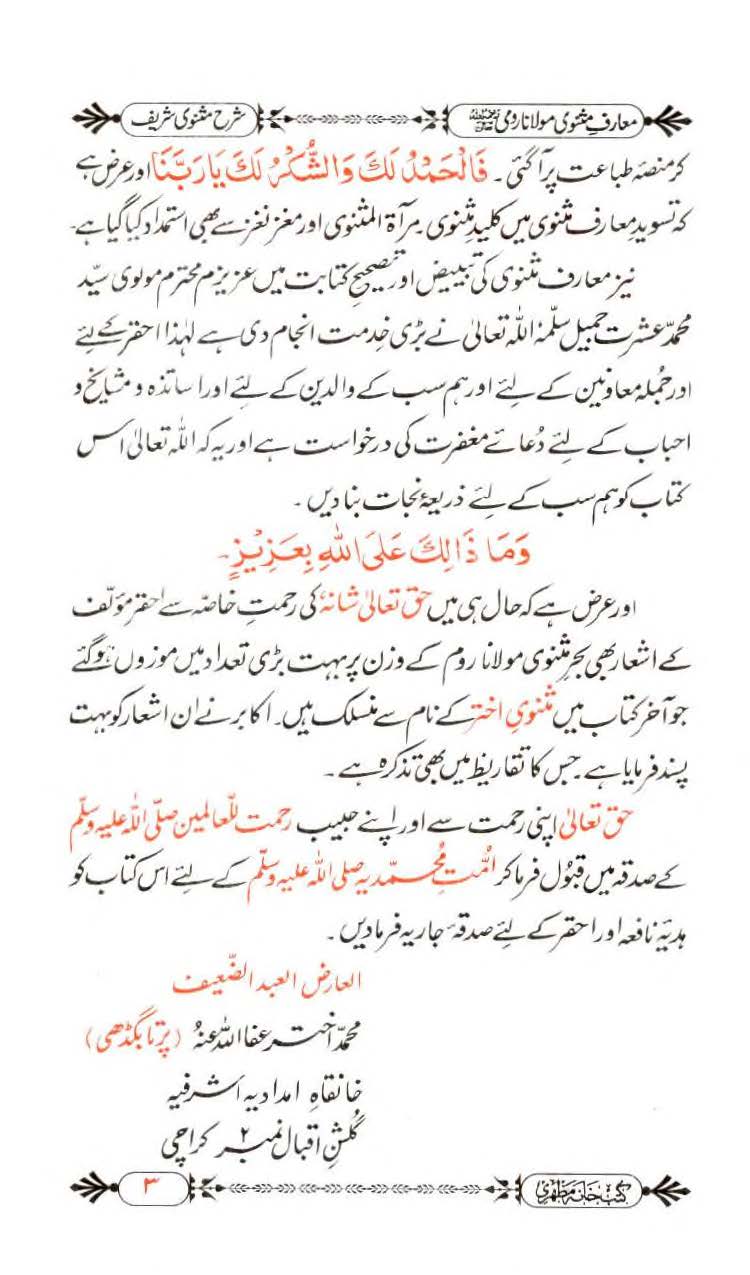 معارفِ مثنوی مولانا رومی رحمۃ اللہ علیہ
شرح مثنوی شریف
کر منصۂ طباعت پر آ گئی۔ فَالْحَمْدُ لَكَ وَالشُّكْرُ لَكَ يَا رَبَّنَا اور عرض ہے
کہ تسوید معارف مثنوی میں کلید مثنوی۔ مرآۃ المثنوی اور مغز نغز سے بھی استمداد کیا گیا ہے۔
نیز معارف مثنوی کی تبییض اور تصحیح کتابت میں عزیزم محترم مولوی سیّد
محمّد عشرت جمیل سلّمہٗ اللہ تعالیٰ نے بڑی خِدمت انجام دی ہے لہٰذا احقر کے لئے
اور جُملہ معاونین کے لئے اور ہم سب کے والدین کے لئے اور اساتذہ و مشایخ و
احباب کے لئے دُعائے مغفرت کی درخواست ہے اور یہ کہ اللہ تعالیٰ اس
کتاب کو ہم سب کے لئے ذریعۂ نجات بنا دیں۔
وَمَا ذَالِكَ عَلَى اللهِ بِعَزِيْزٍ۔
اور عرض ہے کہ حال ہی میں حق تعالیٰ شانہٗ کی رحمتِ خاصّہ سے احقر مؤلف
کے اشعار بھی بحرِ مثنوی مولانا روم کے وزن پر بہت بڑی تعداد میں موزوں ہو گئے
جو آخر کتاب میں مثنویِ اختر کے نام سے منسلک ہیں۔ اکابر نے ان اشعار کو بہت
پسند فرمایا ہے۔ جس کا تقاریظ میں بھی تذکرہ ہے۔
حق تعالیٰ اپنی رحمت سے اور اپنے حبیب رحمت للّعالمین صلّی اللہ علیہ وسلّم
کے صدقہ میں قبُول فرما کر اُمّتِ مُحمّدیہ صلی اللہ علیہ وسلّم کے لئے اس کتاب کو
ہدیۂ نافعہ اور احقر کے لئے صدقۂ جاریہ فرما دیں۔
العارض العبد الضّعیف
محمّد اختر عفا اللہ عنہُ (پرتابگڈھی)
خانقاہِ امدادیہ اشرفیہ
گُلشنِ اقبال نمبر ۲ کراچی
کتب خانہ مظہری
۳